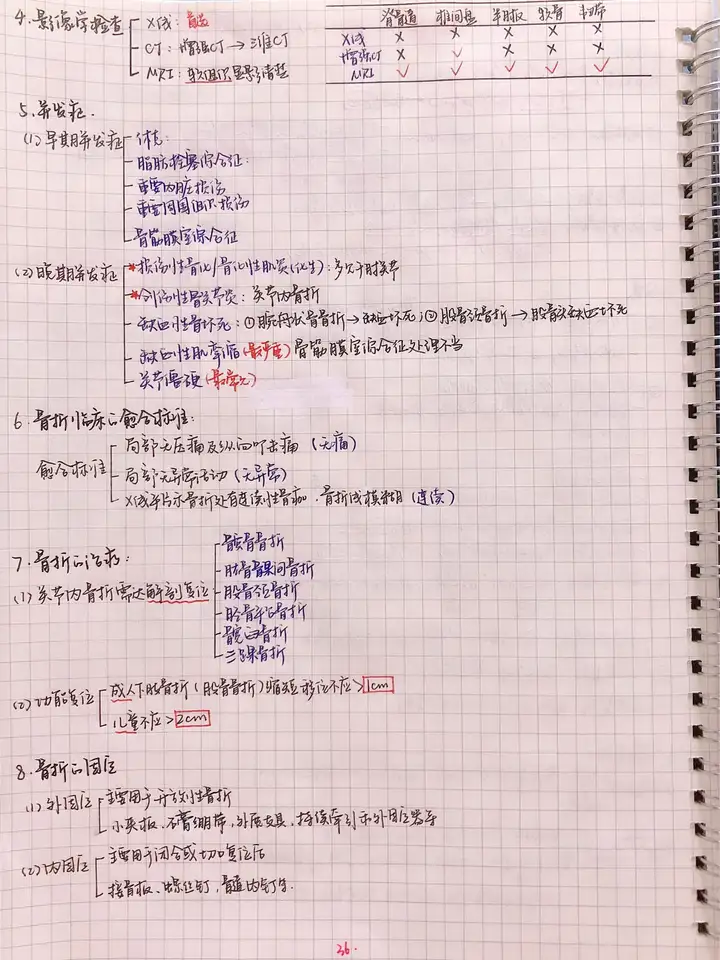 4.影像学检查 X线：首选
CT：增强CT→三维CT
MRI：软组织显影清楚
脊髓 椎间盘 半月板 软骨 韧带
X线 × × × × ×
增强CT × ✓ × × ×
MRI ✓ ✓ ✓ ✓ ✓
5.并发症.
(1)早期并发症 休克：
脂肪栓塞综合征：
重要内脏损伤
重要周围组织损伤
骨筋膜室综合征
(2)晚期并发症 *损伤性骨化/骨化性肌炎(化生)：多见于肘关节
*创伤性骨关节炎：关节内骨折
缺血性骨坏死：①腕舟状骨骨折→缺血坏死；②股骨颈骨折→股骨头缺血坏死
缺血性肌挛缩(最严重)骨筋膜室综合征处理不当
关节僵硬(最常见)
6.骨折临床的愈合标准：
愈合标准 局部无压痛及纵向叩击痛（无痛）
局部无异常活动（无异常）
X线平片示骨折处有连续性骨痂.骨折线模糊（连续）
7.骨折的治疗：
(1)关节内骨折需达解剖复位
髌骨骨折
肱骨髁间骨折
股骨颈骨折
胫骨平台骨折
髋臼骨折
三踝骨折
(2)功能复位 成人下肢骨折(股骨骨折)缩短移位不应>1cm
儿童不应>2cm
8.骨折的固定
(1)外固定 主要用于开放性骨折
小夹板、石膏绷带,外展支具、持续牵引和外固定器等
(2)内固定 主要用于闭合或切口复位后
接骨板、螺丝钉,髓内钉等.
36.